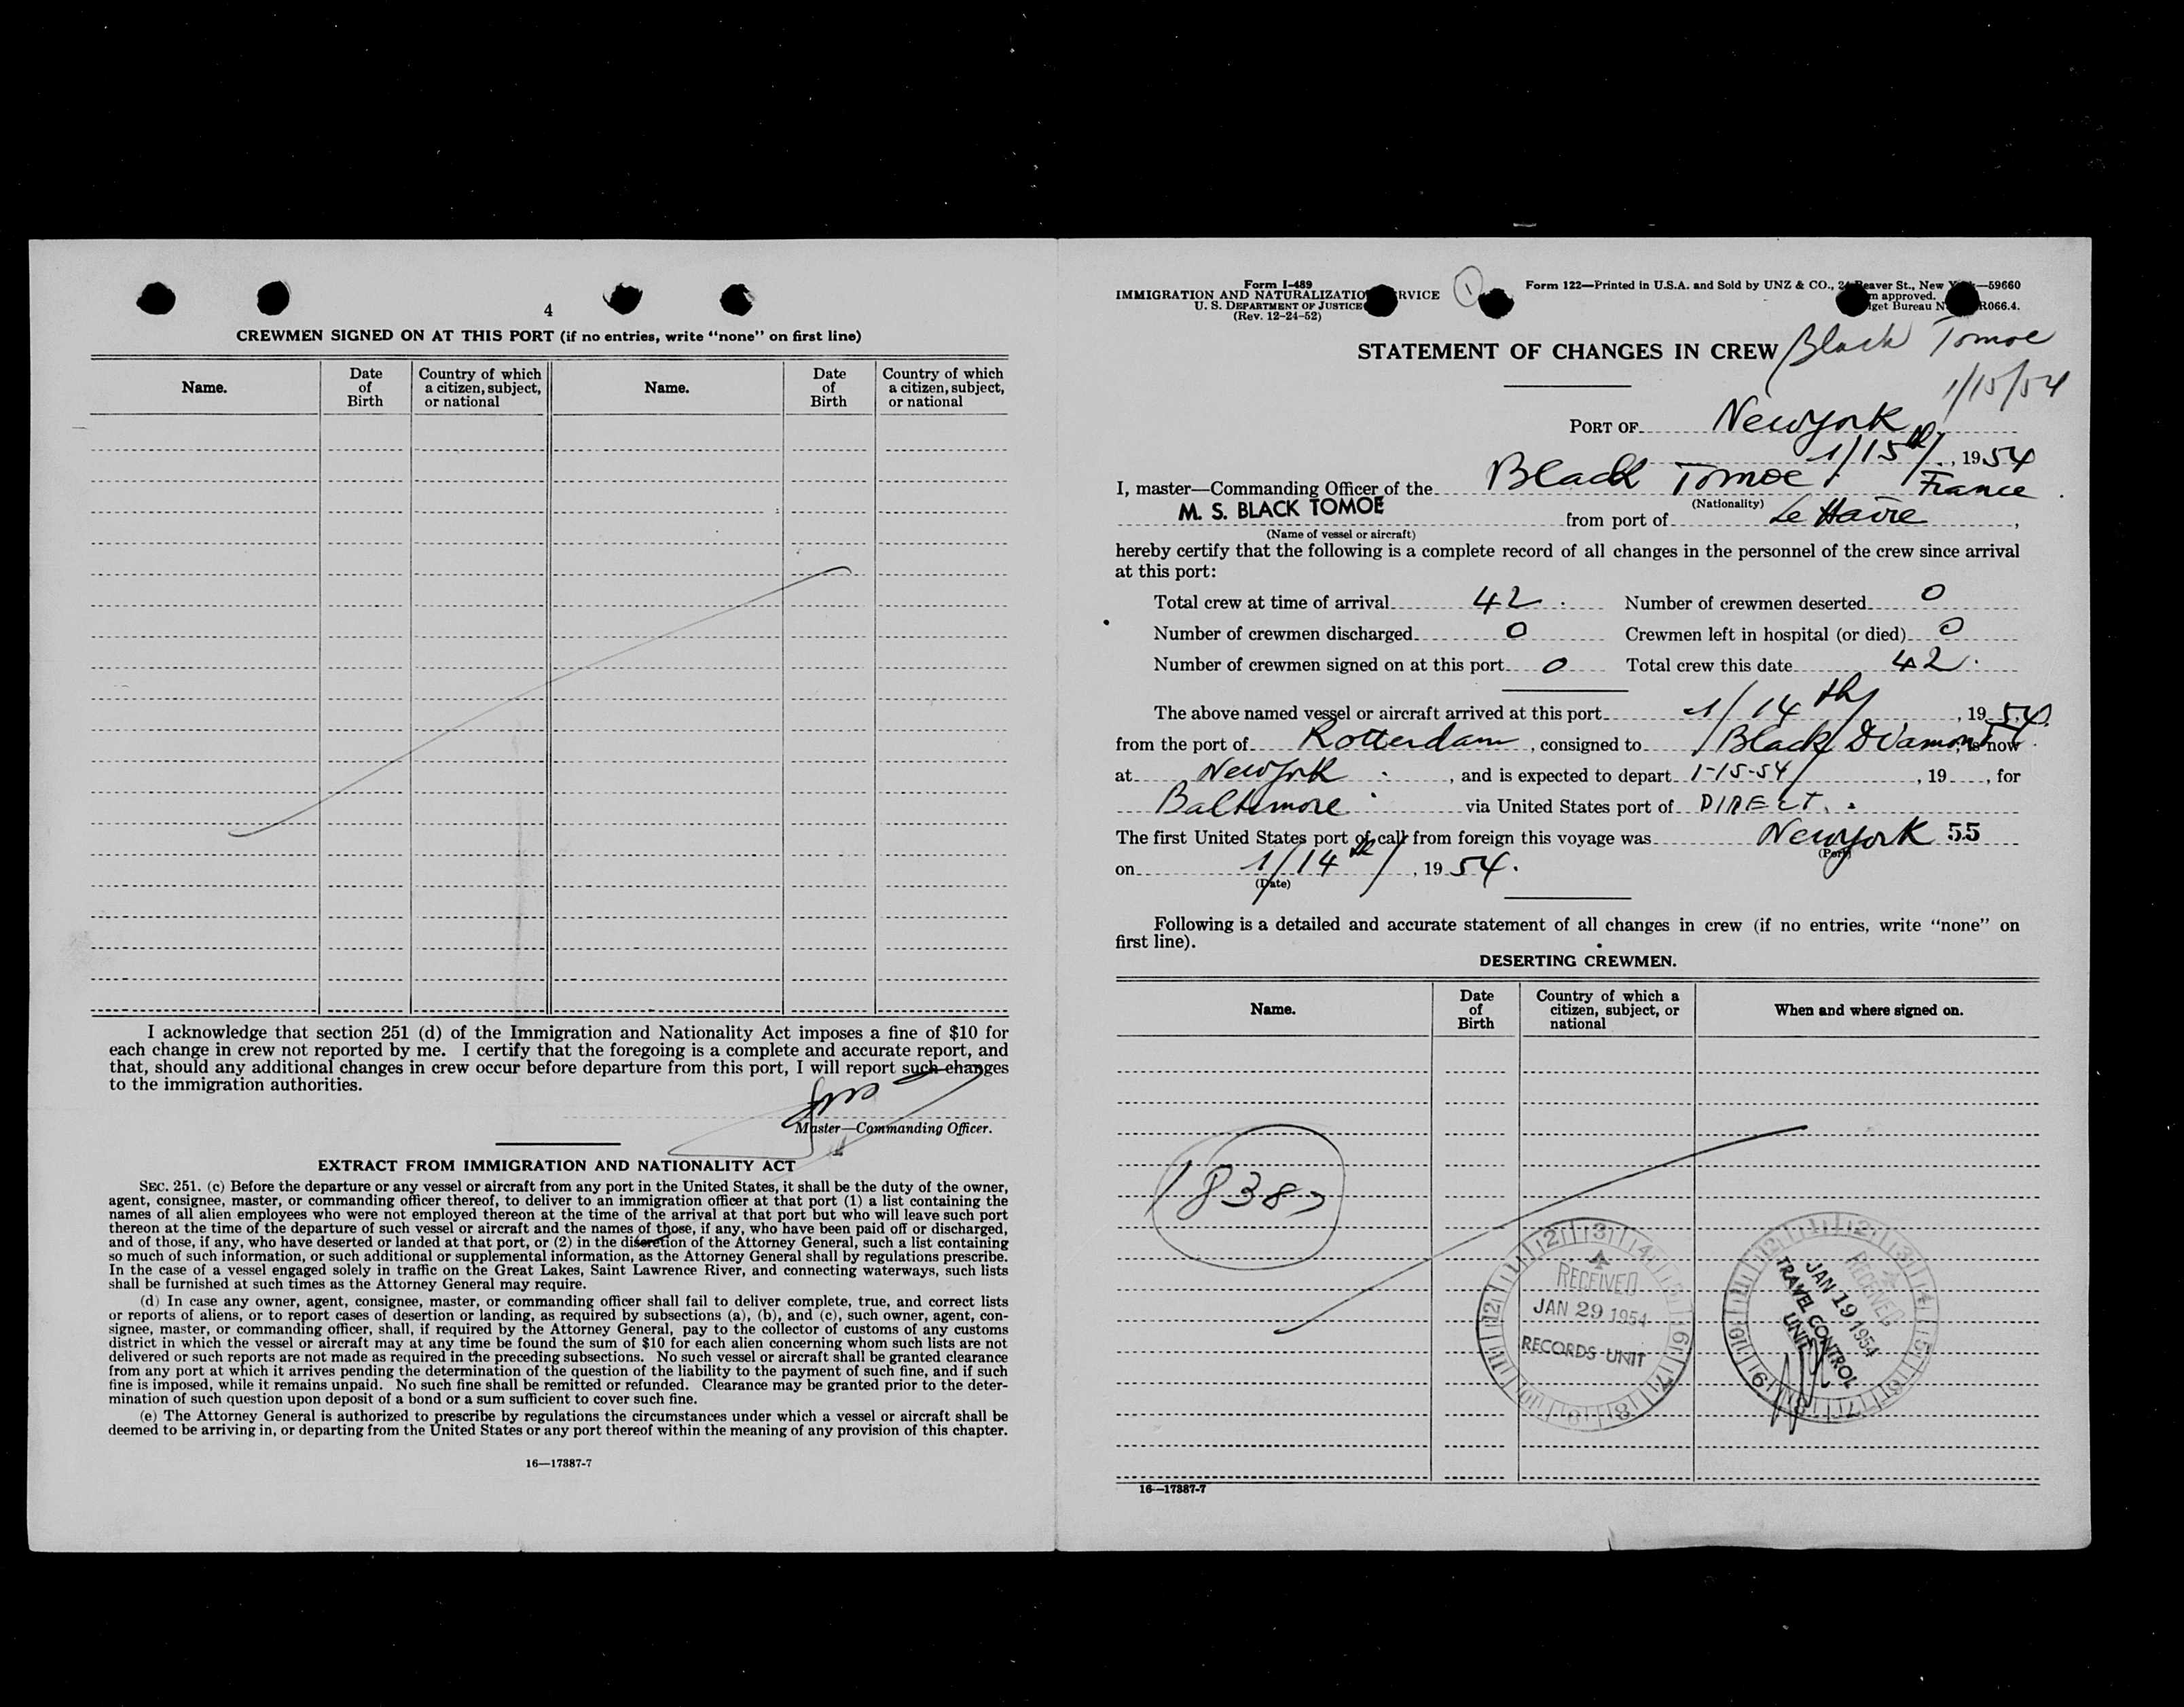 4
CREWMEN SIGNED ON AT THIS PORT (if no entries, write "none" on first line)
Name.
Date
of
Birth
Country of which
a citizen, subject,
or national
Name.
Date
of
Birth
Country of which
a citizen, subject,
or national
I acknowledge that section 251 (d) of the Immigration and Nationality Act imposes a fine of $10 for
each change in crew not reported by me. I certify that the foregoing is a complete and accurate report, and
that, should any additional changes in crew occur before departure from this port, I will report such changes
to the immigration authorities.
Master—Commanding Officer.
EXTRACT FROM IMMIGRATION AND NATIONALITY ACT
SEC. 251. (c) Before the departure or any vessel or aircraft from any port in the United States, it shall be the duty of the owner,
agent, consignee, master, or commanding officer thereof, to deliver to an immigration officer at that port (1) a list containing the
names of all alien employees who were not employed thereon at the time of the arrival at that port but who will leave such port
thereon at the time of the departure of such vessel or aircraft and the names of those, if any, who have been paid off or discharged,
and of those, if any, who have deserted or landed at that port, or (2) in the discretion of the Attorney General, such a list containing
so much of such information, or such additional or supplemental information, as the Attorney General shall by regulations prescribe.
In the case of a vessel engaged solely in traffic on the Great Lakes, Saint Lawrence River, and connecting waterways, such lists
shall be furnished at such times as the Attorney General may require.
(d) In case any owner, agent, consignee, master, or commanding officer shall fail to deliver complete, true, and correct lists
or reports of aliens, or to report cases of desertion or landing, as required by subsections (a), (b), and (c), such owner, agent, con-
signee, master, or commanding officer, shall, if required by the Attorney General, pay to the collector of customs of any customs
district in which the vessel or aircraft may at any time be found the sum of $10 for each alien concerning whom such lists are not
delivered or such reports are not made as required in the preceding subsections. No such vessel or aircraft shall be granted clearance
from any port at which it arrives pending the determination of the question of the liability to the payment of such fine, and if such
fine is imposed, while it remains unpaid. No such fine shall be remitted or refunded. Clearance may be granted prior to the deter-
mination of such question upon deposit of a bond or a sum sufficient to cover such fine.
(e) The Attorney General is authorized to prescribe by regulations the circumstances under which a vessel or aircraft shall be
deemed to be arriving in, or departing from the United States or any port thereof within the meaning of any provision of this chapter.
16—17887-7
Form I-489
IMMIGRATION AND NATURALIZATIO RVICE
U. S. DEPARTMENT OF JUSTICE
(Rev. 12-24-52)
1
Form 122—Printed in U.S.A. and Sold by UNZ & CO., 2 eaver St., New Y —59660
m approved.
get Bureau N R066.4.
STATEMENT OF CHANGES IN CREW Black Tomoe
1/15/54
PORT OF New York
1/15th/, 1954
I, master—Commanding Officer of the Black Tomoe France
M. S. BLACK TOMOE (Nationality) from port of Le Havre,
(Name of vessel or aircraft)
hereby certify that the following is a complete record of all changes in the personnel of the crew since arrival
at this port:
Total crew at time of arrival 42. Number of crewmen deserted 0
Number of crewmen discharged 0 Crewmen left in hospital (or died) 0
Number of crewmen signed on at this port 0 Total crew this date 42.
The above named vessel or aircraft arrived at this port 1/14th/, 1954.
from the port of Rotterdam, consigned to Black Diamond, is now
at New York, and is expected to depart 1-15-54, 19 , for
Baltimore via United States port of DIRECT.
The first United States port of call from foreign this voyage was New York 55
(Port)
on 1/14th/, 1954.
(Date)
Following is a detailed and accurate statement of all changes in crew (if no entries, write "none" on
first line).
DESERTING CREWMEN.
Name.
Date
of
Birth
Country of which a
citizen, subject, or
national
When and where signed on.
RECEIVED
JAN 29 1954
RECORDS UNIT
RECEIVED
JAN 19 1954
TRAVEL CONTROL
UNIT
16—17887-7